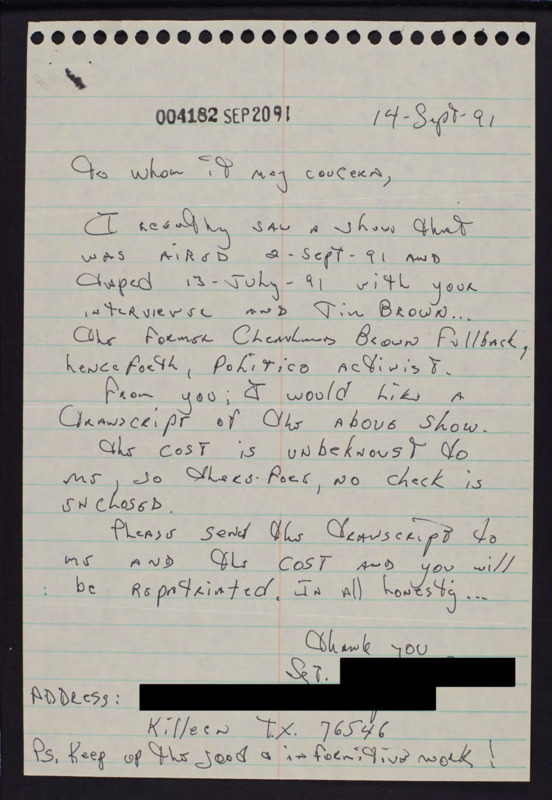 004182 SEP 20 91
14-Sept-91
To whom it may concern,
I recently saw a show that
was aired 2-Sept-91 and
taped 13-July-91 with your
interviewse and Jim Brown...
the former Cleavland Brown Fullback,
henceforth, politico activist.
From you; I would like a
transcript of the above show.
The cost is unbeknoust to
me, so there-fore, no check is
enclosed.
Please send the transcript to
me and the cost and you will
be repatriated. In all honesty...
Thank you
Sgt.
Address:
Killeen TX. 76546
Ps. Keep up the good & informitive work!